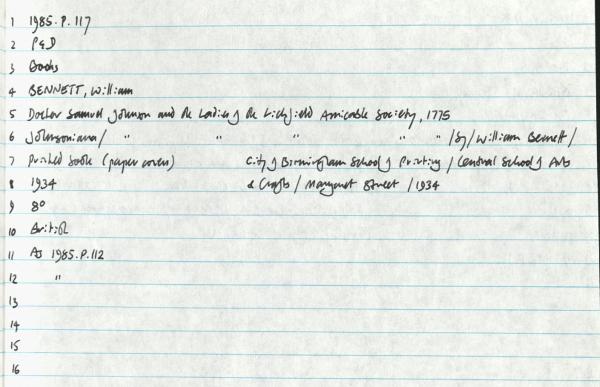 1 1985.P.117
2 P&D
3 Books
4 BENNETT, William
5 Doctor Samuel Johnson and the Ladies of the Lichfield Amicable Society, 1775
6 Johnsoniana / " " " " " / by / William Bennett /
7 Printed book (paper covers) City of Birmingham School of Printing / Central School of Arts
8 1934 & Crafts / Margaret Street / 1934
9 8o
10 British
11 As 1985.P.112
12 "
13
14
15
16